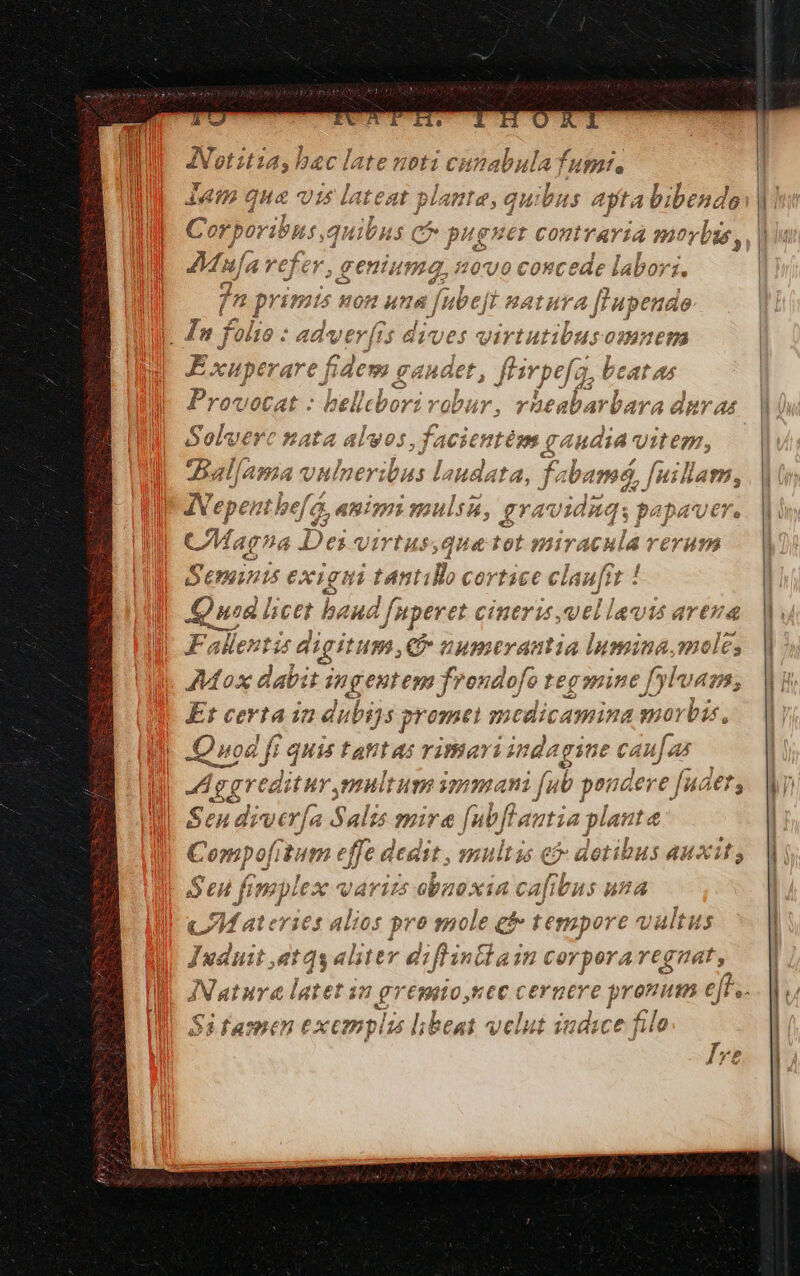 10 RAPH. THORI
Notitia, hac late noti cunabula fumi.
Iam quæ vis lateat plantæ, quibus apta bibendo
Corporibus, quibus & pugnet contraria morbis,
Musa refer, geniumq; novo concede labori.
In primis non una subest natura stupendo
In folio : adversis dives virtutibus omnem
Exuperare fidem gaudet, stirpesq; beatas
Provocat : hellebori robur, rheabarbara duras
Solvere nata alvos, facientém gaudia vitem,
Balsama vulneribus laudata, fabamq; suillam,
Nepenthesq; animi mulsũ, gravidũq; papaver.
Magna Dei virtus, quæ tot miracula rerum
Seminis exigui tantillo cortice clausit !
Quod licet haud superet cineris, vel lævis arenæ
Fallentis digitum, & numerantia lumina, molẽ,
Mox dabit ingentem frondoso tegmine sylvam,
Et certa in dubijs promet medicamina morbis.
Quod si quis tantas rimari indagine causas
Aggreditur, multum immani sub pondere sudet,
Seu diversa Salis miræ substantia plantæ
Compositum esse dedit, multis & dotibus auxit,
Seu simplex variis obnoxia casibus una
Materies alios pro mole & tempore vultus
Induit, atq; aliter distincta in corpora regnat,
Natura latet in gremio, nec cernere pronum est.
Si tamen exemplis libeat velut indice filo
Ire